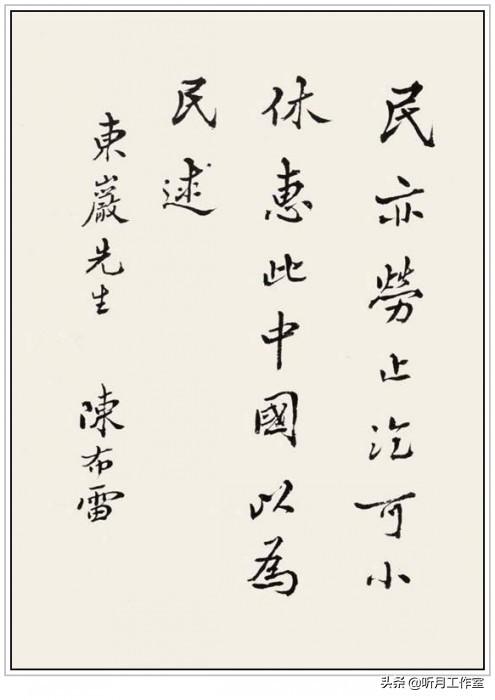 民亦勞止汔可小
休惠此中國以為
民逑
東巖先生 陳布雷
头条 @听月工作室